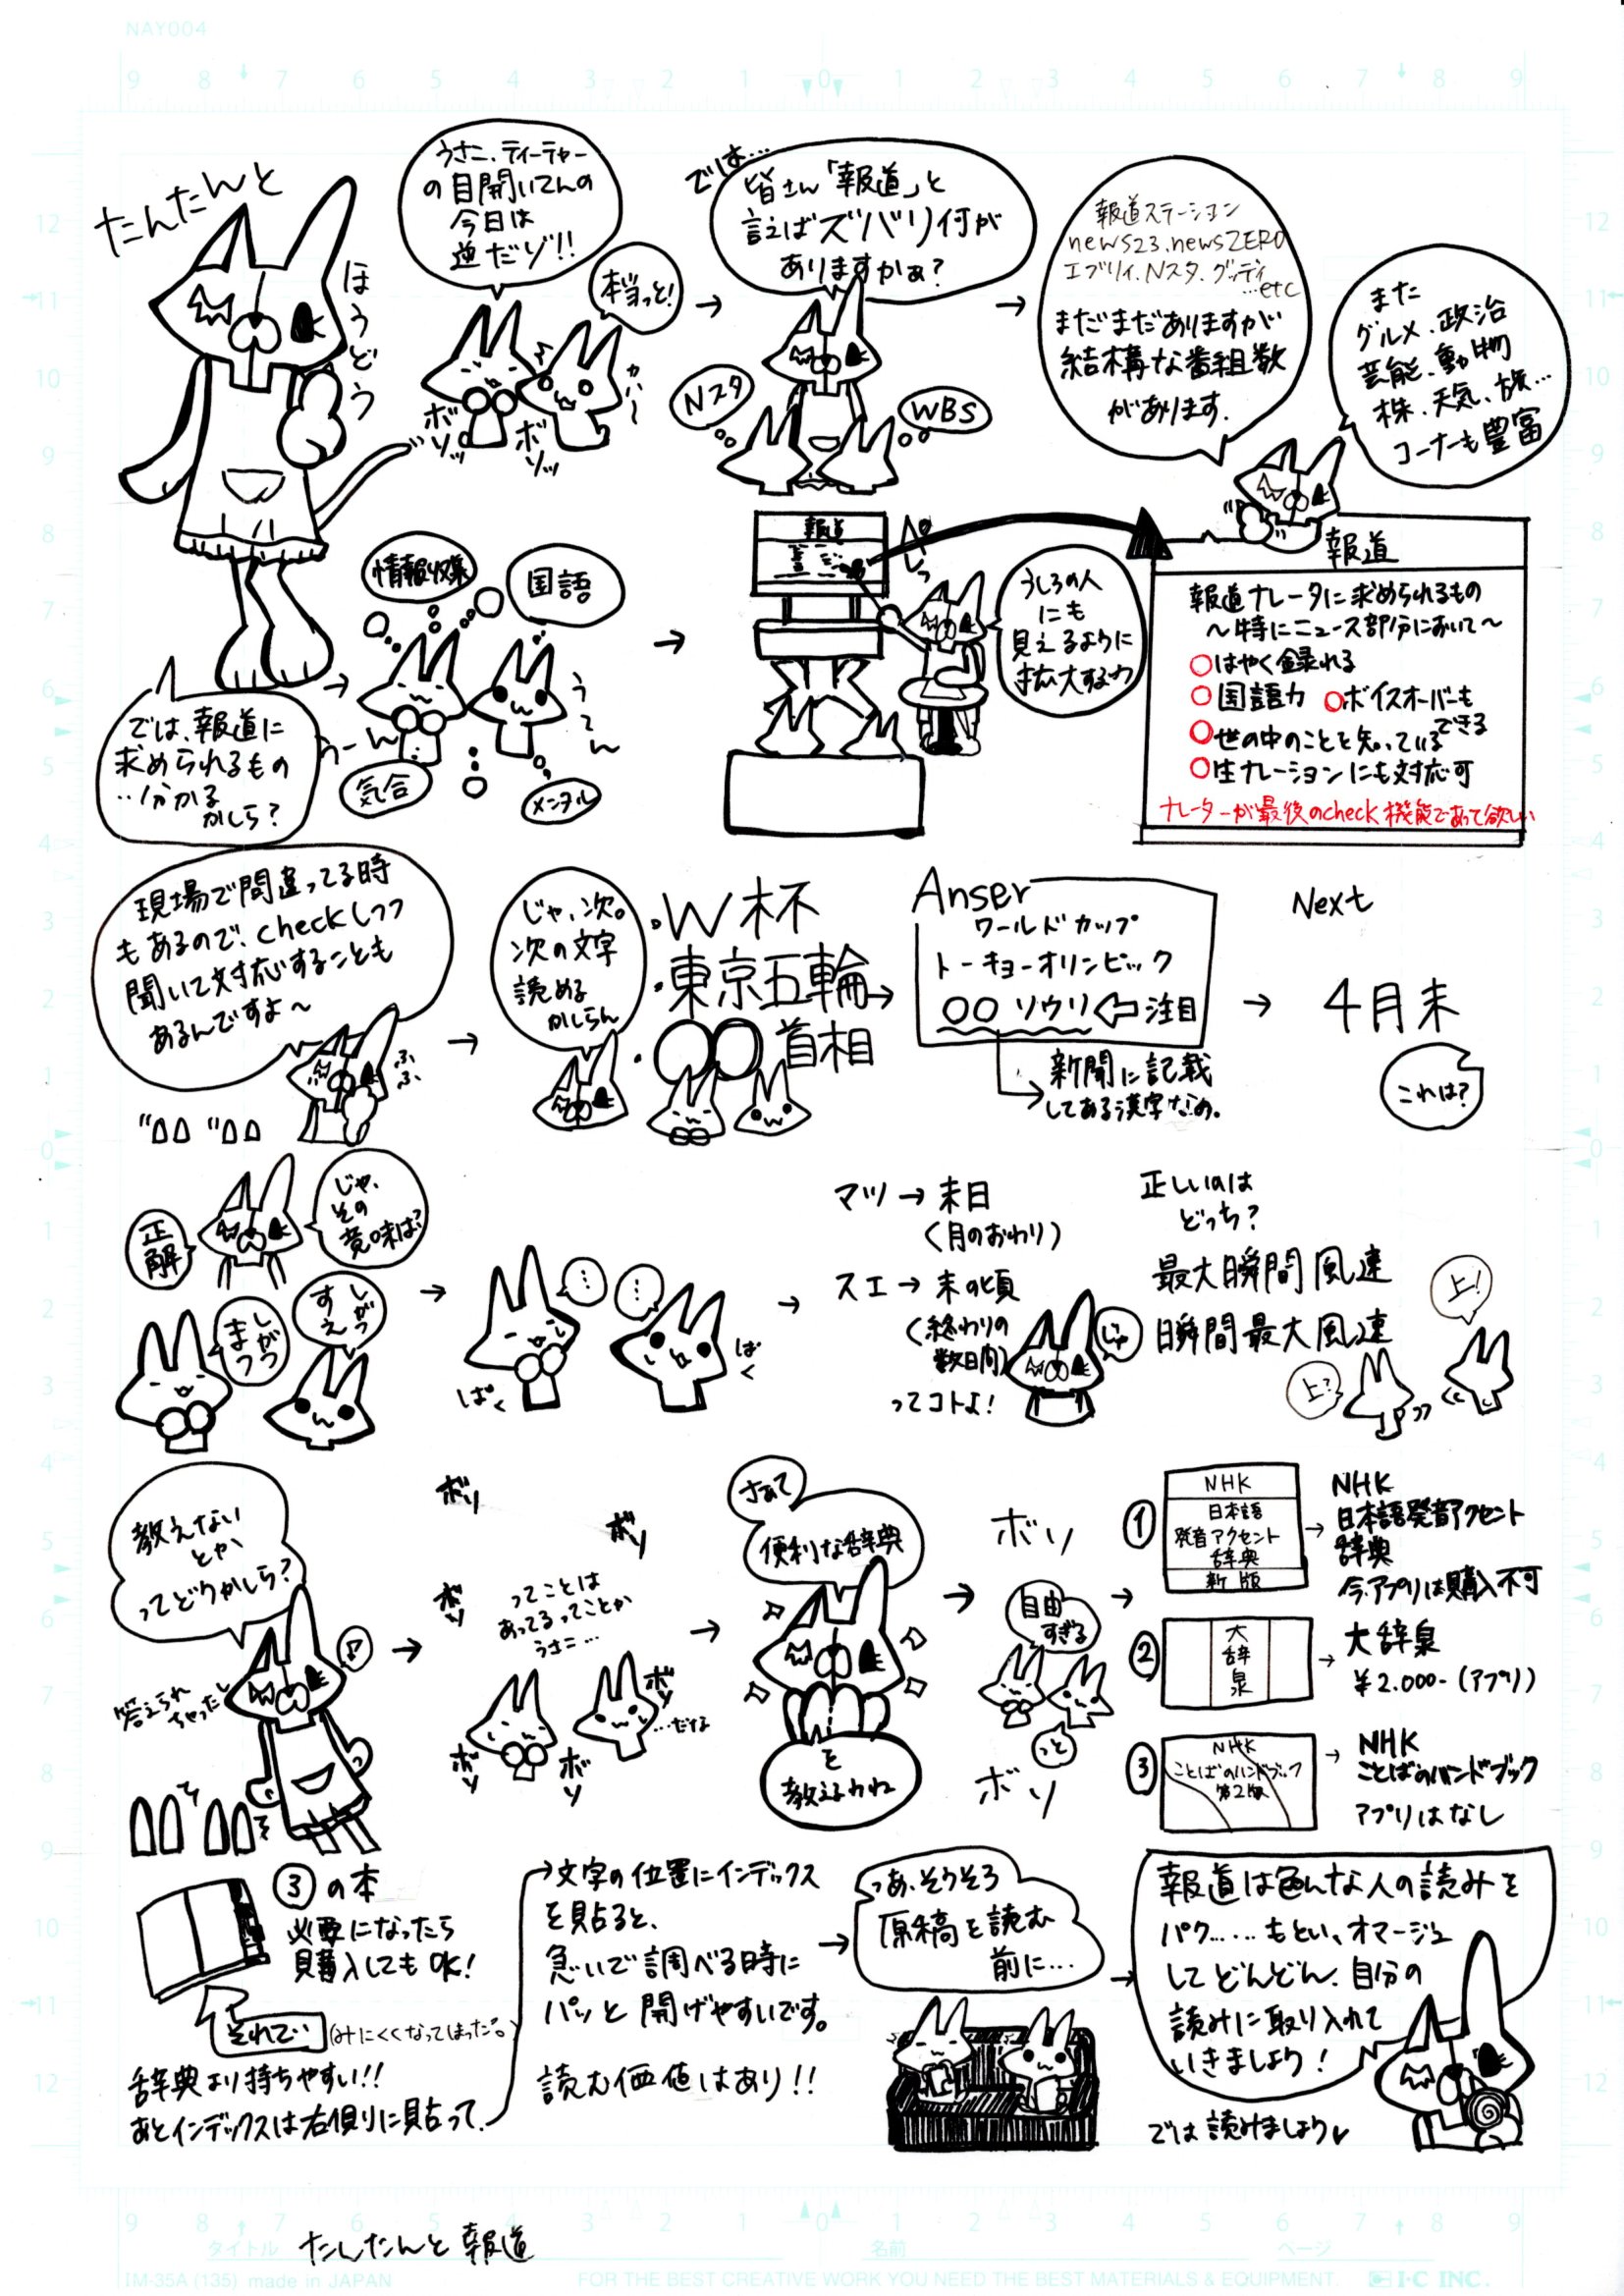 NAY004
たんたんと
ほうどう
うさこ、ティーチャー
の目開いてんの
今日は
逆だゾ!!
本当っと!
ボソッ
ボソッ
では…
皆さん「報道」と
言えばズバリ何が
ありますかぁ?
Nスタ
WBS
報道ステーション
news23.newsZERO
エブリィ、Nスタ、グッディ
…etc
まだまだありますが
結構な番組数
があります.
また
グルメ、政治
芸能、動物
株、天気、旅…
コーナーも豊富
では、報道に
求められるもの
‥分かる
かしら?
情報収集
国語
うーん
うーん
気合
メンタル
報道
うしろの人
にも
見えるように
拡大するわ
報道
報道ナレータに求められるもの
～特にニュース部分において～
○はやく録れる
○国語力 ○ボイスオーバーも
できる
○世の中のことを知っている
○生ナレーションにも対応可
ナレーターが最後のcheck機能であって欲しい
現場で間違ってる時
もあるので、checkしつつ
聞いて対応することも
あるんですよ～
ふふ
じゃ、次。
次の文字
読める
かしらん
・W杯
・東京五輪
・○○首相
Anser
ワールドカップ
トーキョーオリンピック
○○ソウリ⇦注目
新聞に記載
してある漢字なの。
Next
4月末
これは?
正解
じゃ、
その
意味は?
しがつ
まつ
しがつ
すえ
…
…
ぱく
ぱく
マツ→末日
(月のおわり)
スエ→末の頃
(終わりの
数日間)
ってコトよ!
じゃ
正しいのは
どっち?
最大瞬間風速
瞬間最大風速
上!
上?
教えない
とか
ってどうかしら?
答えられ
ちゃったし
♪
ボソ
ボソ
ボソ
ってことは
あってるってことか
うさこ…
ボソ
…だな
ボソ
ボソ
さぁて
便利な辞典
を
教えるわね
ボソ
自由
すぎる
っと
ボソ
①
NHK
日本語
発音アクセント
辞典
新版
→NHK
日本語発音アクセント
辞典
今、アプリは購入不可
②
大辞泉
→大辞泉
¥2.000-(アプリ)
③
NHK
ことばのハンドブック
第2版
→NHK
ことばのハンドブック
アプリはなし
③の本
必要になったら
購入してもOK!
それで‥
(みにくくなってしまった。)
辞典より持ちやすい!!
あとインデックスは右側りに貼って.
→文字の位置にインデックス
を貼ると、
急いで調べる時に
パッと開けやすいです。
読む価値はあり!!
っあ、そうそう
原稿を読む
前に…
報道は色んな人の読みを
パク……もとい、オマージュ
してどんどん、自分の
読みに取り入れて
いきましょう!
では読みましょう♥
タイトル たんたんと報道
名前
ページ
IM-35A (135) made in JAPAN
FOR THE BEST CREATIVE WORK YOU NEED THE BEST MATERIALS & EQUIPMENT.
I·C INC.